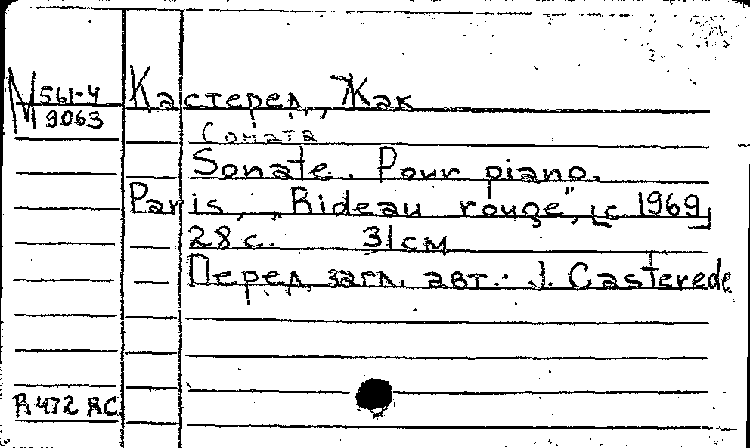 М 561-4
9063
Кастерел, Жак
Соната
Sonate. Pour piano.
Paris, „Rideau rouge", [c 1969]
28 с. 31 см
Перед загл. авт.: J. Casterede
R 472 RC